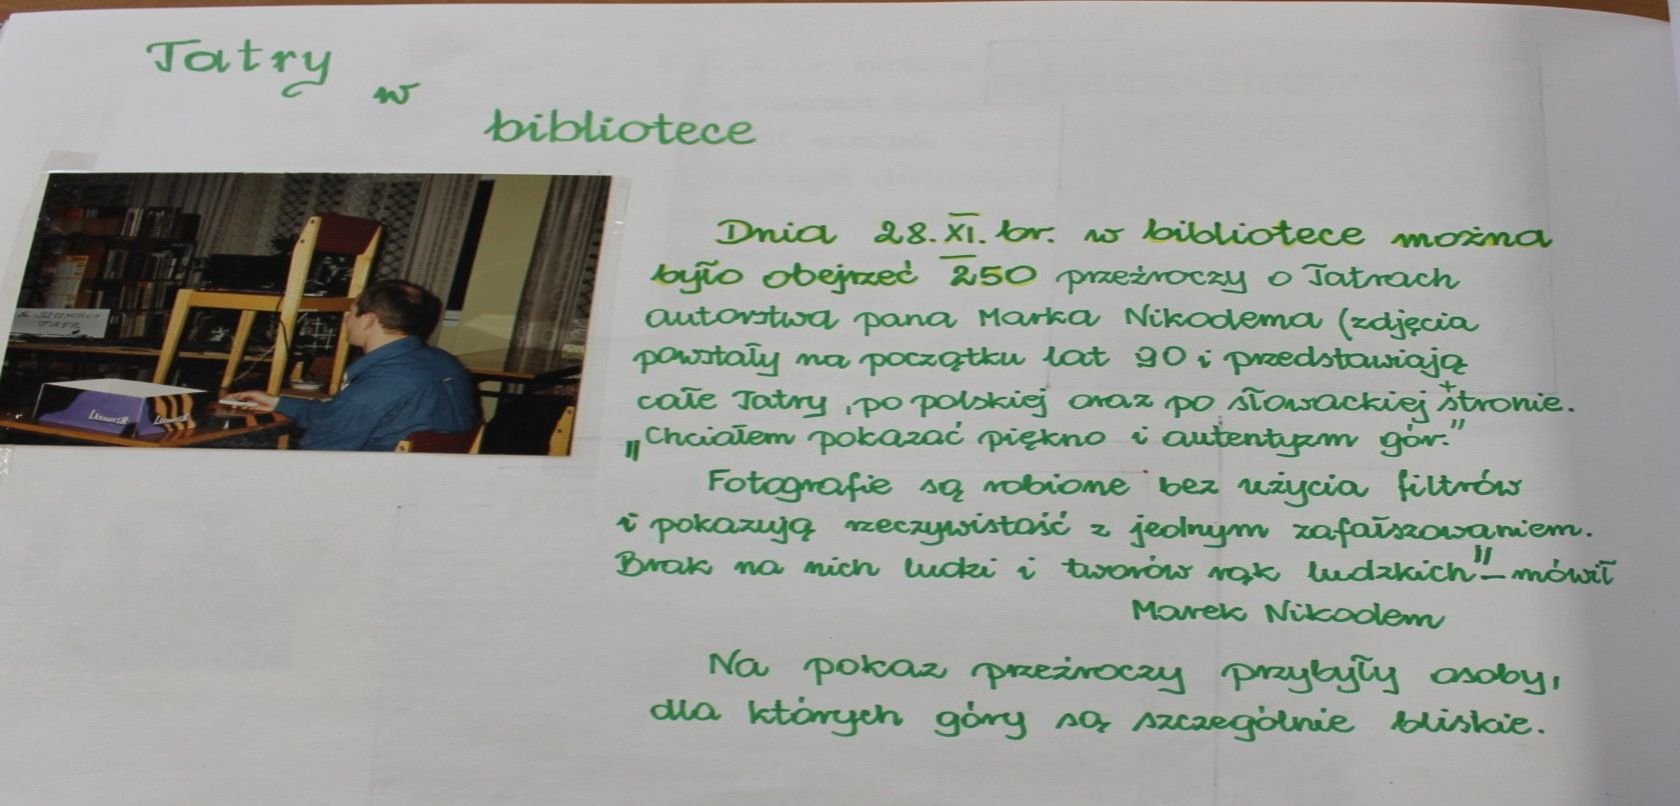 Tatry
w
bibliotece
Dnia 28. XI. br. w bibliotece można
było obejrzeć 250 przeźroczy o Tatrach
autorstwa pana Marka Nikodema (zdjęcia
powstały na początku lat 90 i przedstawiają
całe Tatry, po polskiej oraz po słowackiej stronie.
„Chciałem pokazać piękno i autentyzm gór."
Fotografie są robione bez użycia filtrów
i pokazują rzeczywistość z jednym zafałszowaniem.
Brak na nich ludzi i tworów rąk ludzkich" – mówił
Marek Nikodem
Na pokaz przeźroczy przybyły osoby,
dla których góry są szczególnie bliskie.